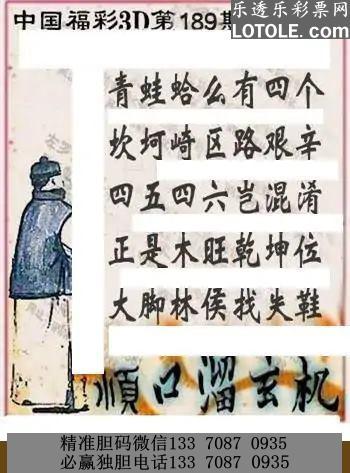 乐透乐彩票网
LOTOLE.COM
中国福彩3D第189期
青蛙蛤么有四个
坎坷崎区路艰辛
四五四六岂混淆
正是木旺乾坤位
大脚林侯找失鞋
顺口溜玄机
精准胆码微信133 7087 0935
必赢独胆电话133 7087 0935